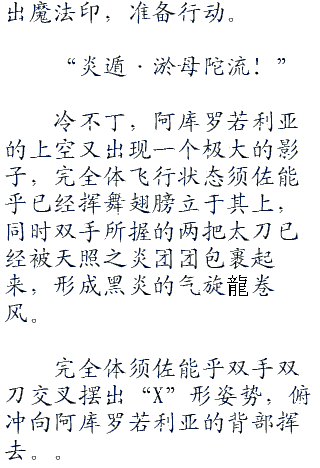 出魔法印，准备行动。
“炎遁·淤母陀流！”
冷不丁，阿库罗若利亚
的上空又出现一个极大的影
子，完全体飞行状态须佐能
乎已经挥舞翅膀立于其上，
同时双手所握的两把太刀已
经被天照之炎团团包裹起
来，形成黑炎的气旋龍卷
风。
完全体须佐能乎双手双
刀交叉摆出“X”形姿势，俯
冲向阿库罗若利亚的背部挥
去。。